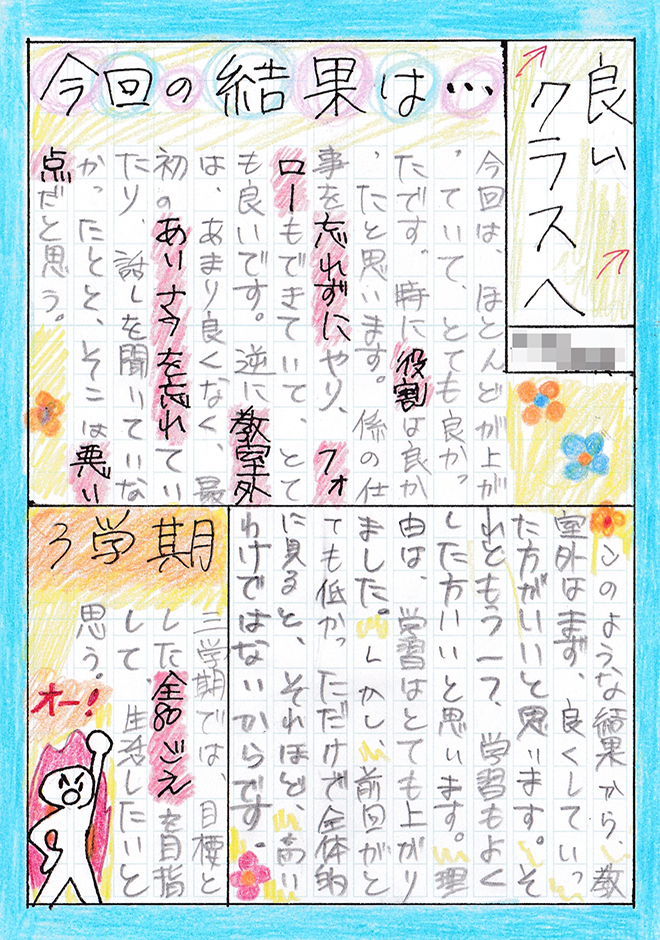 良い
クラスへ
今回の結果は…
今回は、ほとんどが上が
っていて、とても良かっ
たです。時に役割は良か
ったと思います。係の仕
事を忘れずにやり、フォ
ローもできていて、とて
も良いです。逆に教室外
は、あまり良くなく、最
初のあいサツを忘れてい
たり、話しを聞いていな
かったとと、そこは悪い
点だと思う。
このような結果から、教
室外はまず、良くしていっ
た方がいいと思います。そ
れともう一つ、学習もよく
した方いいと思います。理
由は、学習はとても上がり
ました。しかし、前回がと
ても低かっただけで全体的
に見ると、それほど、高い
わけではないからです。
3学期
三学期では、目標と
した全80ごえを目指
して、生活したいと
思う。
オー!